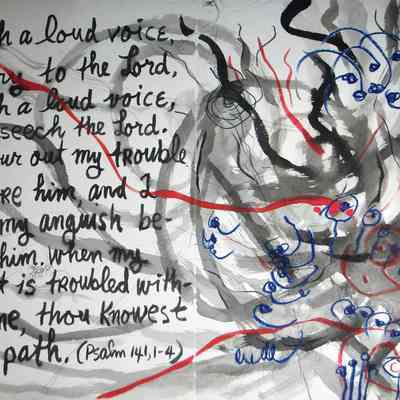 h a loud voice,
ry to the Lord,
h a loud voice,
seech the Lord.
ur out my trouble
re him, and I
my anguish be-
him. When my
t is troubled with-
ne, thou knowest
path. (Psalm 141, 1-4)